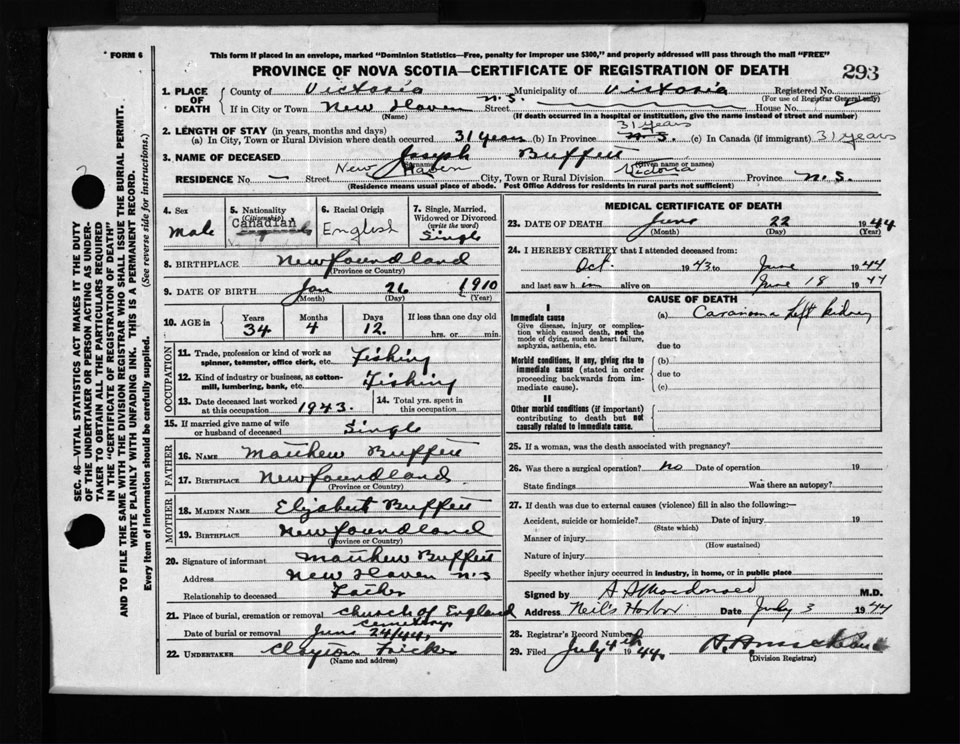 FORM 6
This form if placed in an envelope, marked "Dominion Statistics—Free, penalty for improper use $300," and properly addressed will pass through the mail "FREE"
PROVINCE OF NOVA SCOTIA—CERTIFICATE OF REGISTRATION OF DEATH
293
SEC. 46—VITAL STATISTICS ACT MAKES IT THE DUTY
OF THE UNDERTAKER OR PERSON ACTING AS UNDER-
TAKER TO OBTAIN ALL THE PARTICULARS REQUIRED
IN THE "CERTIFICATE OF REGISTRATION OF DEATH"
AND TO FILE THE SAME WITH THE DIVISION REGISTRAR WHO SHALL ISSUE THE BURIAL PERMIT.
WRITE PLAINLY WITH UNFADING INK. THIS IS A PERMANENT RECORD.
Every item of information should be carefully supplied. (See reverse side for instructions.)
1. PLACE OF DEATH
County of Victoria Municipality of Victoria Registered No.
(For use of Registrar General only)
If in City or Town New Haven N.S. Street House No.
(Name) (If death occurred in a hospital or institution, give the name instead of street and number)
2. LENGTH OF STAY (in years, months and days)
(a) In City, Town or Rural Division where death occurred 31 years (b) In Province 31 years N.S. (c) In Canada (if immigrant) 31 years
3. NAME OF DECEASED Joseph Buffett
(Surname) (Given name or names)
RESIDENCE No. — Street New Haven City, Town or Rural Division Victoria Province N.S.
(Residence means usual place of abode. Post Office Address for residents in rural parts not sufficient)
4. Sex
Male
5. Nationality
(Citizenship)
Canadian
6. Racial Origin
English
7. Single, Married,
Widowed or Divorced
(write the word)
Single
8. BIRTHPLACE Newfoundland
(Province or Country)
9. DATE OF BIRTH Jan 26 1910
(Month) (Day) (Year)
10. AGE in
Years Months Days If less than one day old
34 4 12. hrs. or min.
OCCUPATION
11. Trade, profession or kind of work as
spinner, teamster, office clerk, etc. Fishing
12. Kind of industry or business, as cotton-
mill, lumbering, bank, etc. Fishing
13. Date deceased last worked
at this occupation 1943.
14. Total yrs. spent in
this occupation
15. If married give name of wife
or husband of deceased Single
FATHER
16. NAME Matthew Buffett
17. BIRTHPLACE Newfoundland
(Province or Country)
MOTHER
18. MAIDEN NAME Elizabert Buffett
19. BIRTHPLACE Newfoundland
(Province or Country)
20. Signature of informant Matthew Buffett
Address New Haven N.S
Relationship to deceased Father
21. Place of burial, cremation or removal Church of England
Cemetery
Date of burial or removal June 24/44,
22. UNDERTAKER Clayton
(Name and address)
MEDICAL CERTIFICATE OF DEATH
23. DATE OF DEATH June 22 1944
(Month) (Day) (Year)
24. I HEREBY CERTIFY that I attended deceased from:
Oct. 1943 to June 1944
and last saw him alive on June 18 1944
CAUSE OF DEATH
I
Immediate cause
Give disease, injury or complica-
tion which caused death, not the
mode of dying, such as heart failure,
asphyxia, asthenia, etc.
(a) Caranoma left kidney
due to
Morbid conditions, if any, giving rise to
immediate cause (stated in order
proceeding backwards from im-
mediate cause).
(b)
due to
(c)
II
Other morbid conditions (if important)
contributing to death but not
causally related to immediate cause.
25. If a woman, was the death associated with pregnancy?
26. Was there a surgical operation? no Date of operation 19
State findings Was there an autopsy?
27. If death was due to external causes (violence) fill in also the following:—
Accident, suicide or homicide? Date of injury 19
(State which)
Manner of injury
(How sustained)
Nature of injury
Specify whether injury occurred in industry, in home, or in public place
Signed by A A Macdonald M.D.
Address Neil's Harbor Date July 3 1944
28. Registrar's Record Number
29. Filed July 4th 1944.
(Division Registrar)